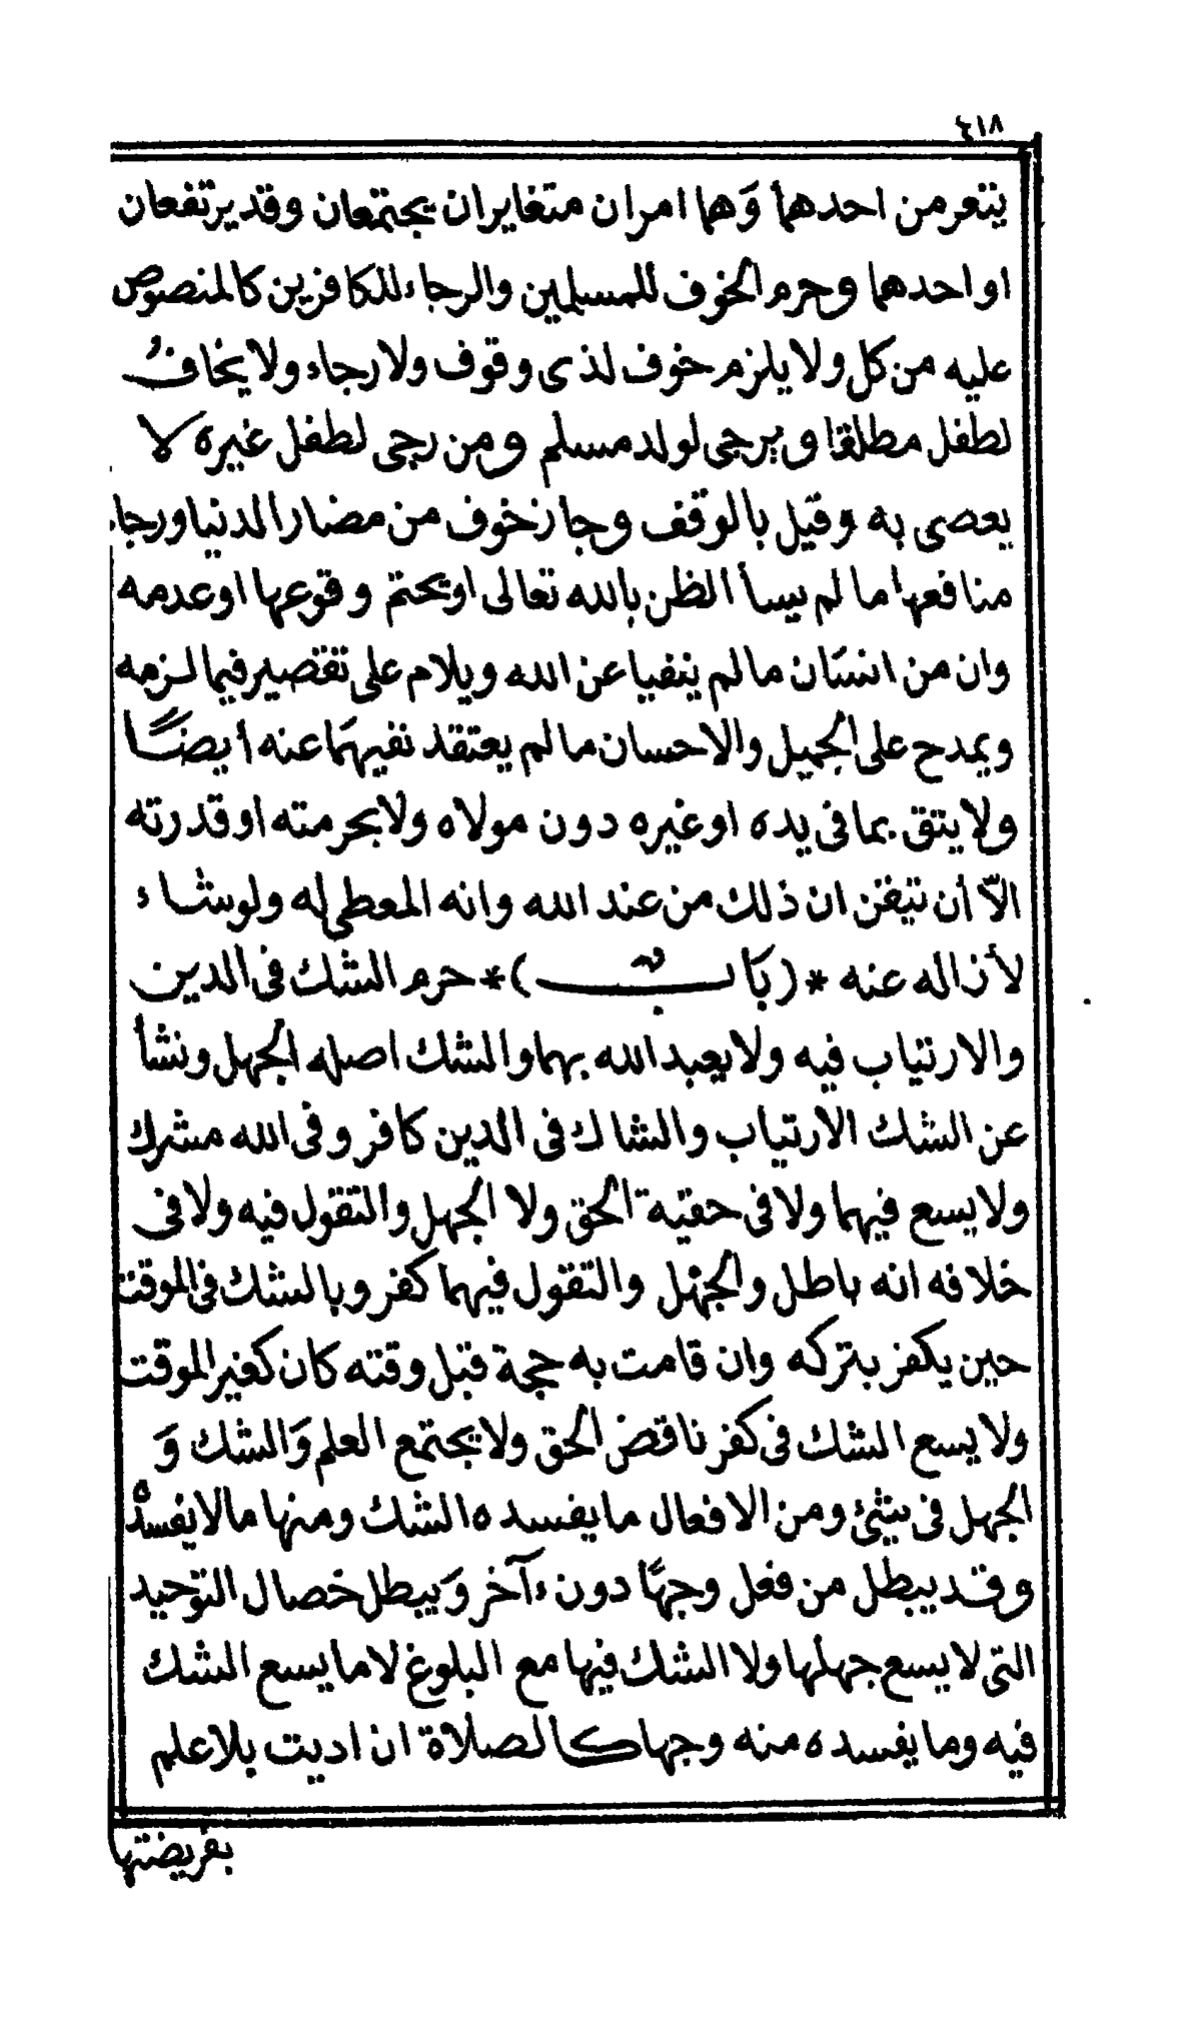 ٤١٨
يتعر من احدهما وَهما امران متغايران يجتمعان وقد يرتفعان
او احدهما وحرم الخوف للمسلمين والرجاء للكافرين كالمنصوص
عليه من كل ولا يلزم خوف لذى وقوف ولا رجاء ولا يخافُ
لطفل مطلقا ويرجى لولد مسلم ومن رجى لطفل غيره لا
يعصى به وقيل بالوقف وجاز خوف من مضار الدنيا ورجاء
منافعها ما لم يسأ الظن بالله تعالى او يحتم وقوعها او عدمه
وان من انسَان ما لم ينفيا عن الله ويلام على تقصير فيما لزمه
ويمدح على الجميل والاحسان ما لم يعتقد نفيهمَا عنه أيضًا
ولا يثق بما فى يده او غيره دون مولاه ولا بحرمته او قدرته
الاّ أن تيقن ان ذلك من عند الله وانه المعطى له ولو شاء
لأزاله عنه *(بَابٌ)* حرم الشك فى الدين
والارتياب فيه ولا يعبد الله بهما والشك اصله الجهل ونشأ
عن الشك الارتياب والشاك فى الدين كافر وفى الله مشرك
ولا يسع فيهما ولا فى حقية الحق ولا الجهل والتقول فيه ولا فى
خلافه انه باطل والجهل والتقول فيهما كفر وبالشك فى الموقت
حين يكفر بتركه وان قامت به حجة قبل وقته كان كغير الموقت
ولا يسع الشك فى كفر ناقض الحق ولا يجتمع العلم وَالشك وَ
الجهل فى شئ ومن الافعال ما يفسده الشك ومنها ما لا يفسدُه
وقد يبطل من فعل وجهًا دون ءآخر وَيبطل خصال التوحيد
التى لا يسع جهلها ولا الشك فيها مع البلوغ لا ما يسع الشك
فيه وما يفسده منه وجها كالصلاة ان اديت بلا علم
بفريضتها